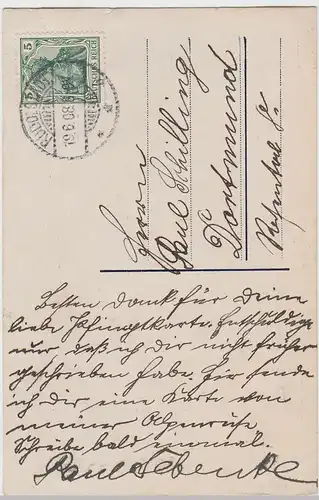 5
DEUTSCHES REICH
19.6.08.
Herrn
Paul Schilling
Dortmund
Besten Dank für Deine
liebe Pfingstkarte. Entschuldige
nur, daß ich Dir nicht früher
geschrieben habe. Hier sende
ich Dir eine Karte von
meiner
Schreibe bald einmal.
Paul